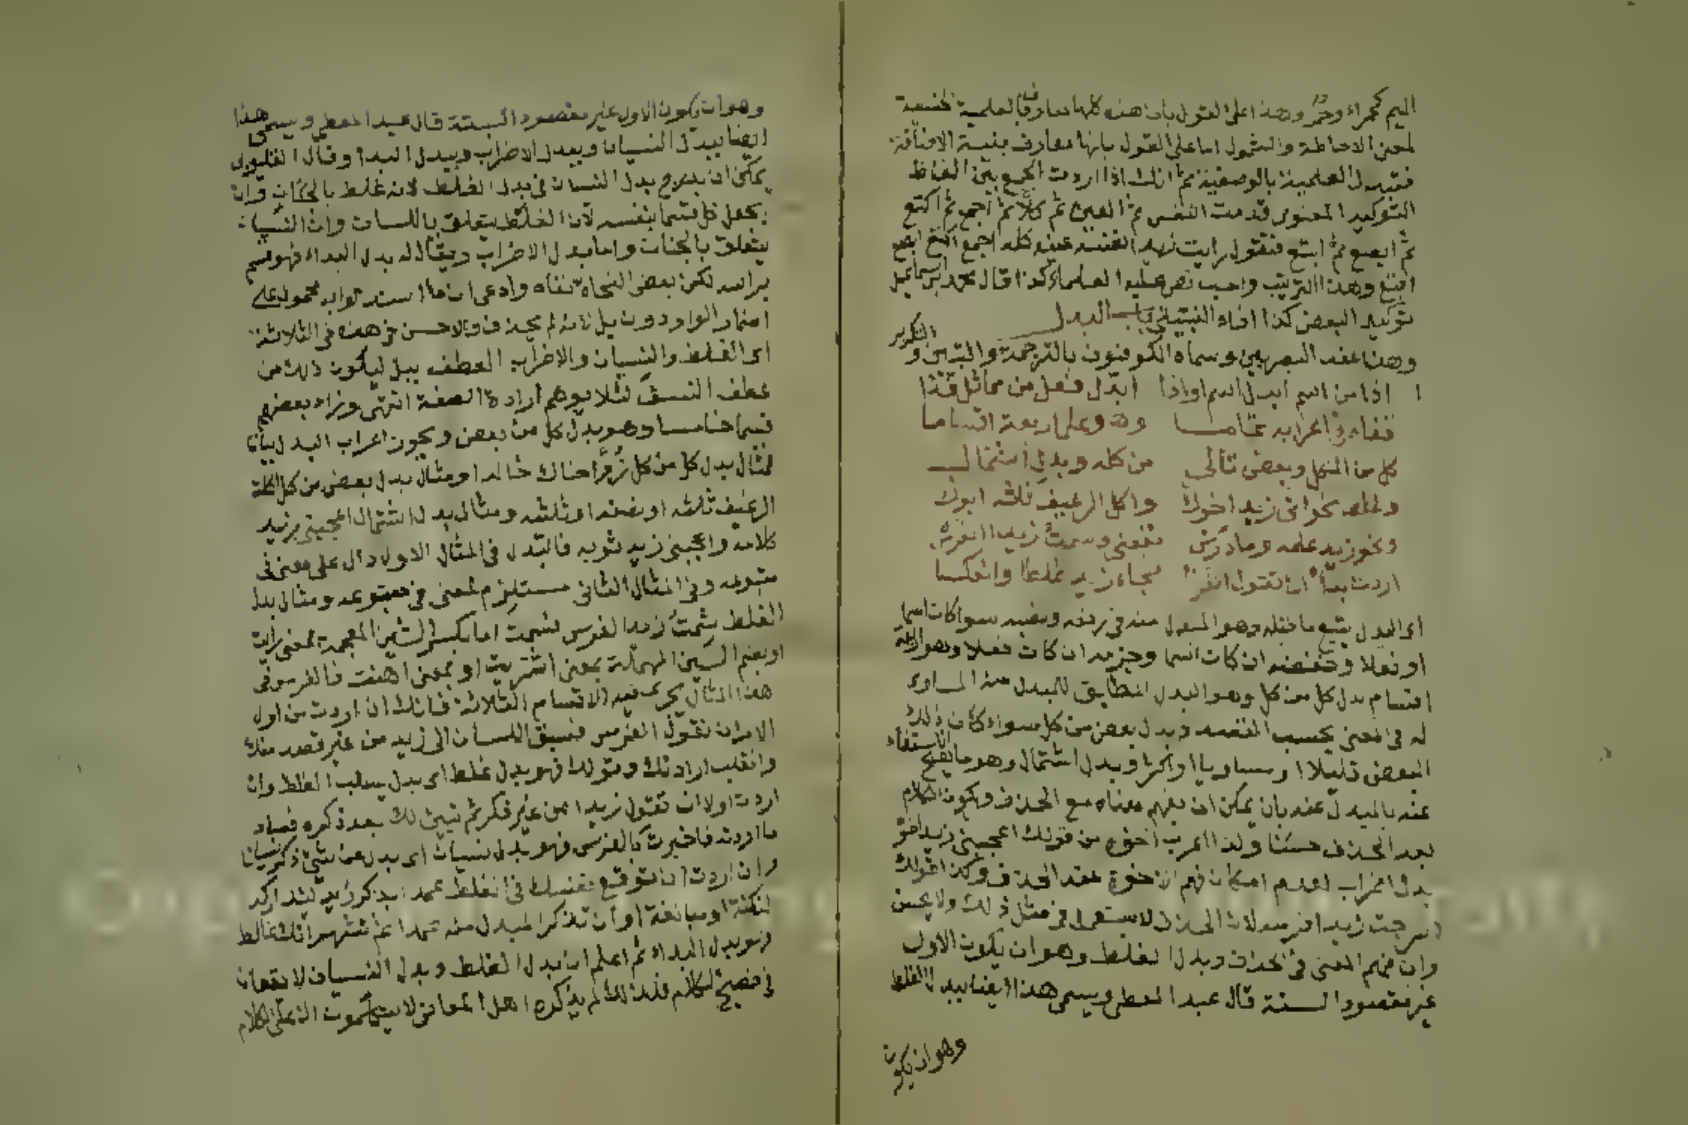 الميم كحمراء وحمر وهذا على القول بان هذه كلها معارف بالعلمية الجنسية
لمعنى الاحاطة والشمول اما على القول بانها معارف بنية الاضافة
فتبدل العلمية بالوصفية ثم انك اذا اردت الجمع بين الفاظ
التوكيد المعنوى قدمت النفس ثم العين ثم كلا ثم اجمع ثم اكتع
ثم ابصع ثم ابتع فتقول رايت زيدا نفسه عينه كله اجمع اكتع ابصع
ابتع وهذا الترتيب واجب نص عليه العلماء كذا قال محمد بن اسماعيل
توكيد البعض كذا افاده باب البدل
وهذا عند البصريين وسماه الكوفيون بالترجمة والتبيين و التكرير
اذا من اسم ابدل اسم او اذا ابدل فعل من مماثل فذا
فقله فى اعرابه تماما وهو على اربعة اقساما
كل من الكل وبعض تالى من كله وبدل اشتمال
وغلط نحو اتى زيد اخوك واكل الرغيف ثلثه ابوك
ونحو زيد علمه وما درس نفعنى وسمت زيدا الفرس
اردت بدأ ان تقول الفرس فجاء زيد غلطا وانعكسا
اى البدل يتبع ما قبله وهو المبدل منه فى رفعه ونصبه سواء كان اسما
او فعلا وخفضه ان كان اسما وجزمه ان كان فعلا وهو اربعة
اقسام بدل كل من كل وهو البدل المطابق للمبدل منه المساوى
له فى المعنى بحسب القصد وبدل بعض من كل سواء كان ذلك
البعض قليلا او مساويا او اكثر وبدل اشتمال وهو ما يصح الاستغناء
عنه بالمبدل عنه بان يمكن ان يفهم معناه مع الحذف ويكون الكلام
بعد الحذف حسنا ولذا اعرب اخوه من قولك اعجبنى زيد اخوه
بدل اضراب لعدم امكان فهم الاخوة عند الحذف وكذا قولك
اسرجت زيدا فرسه لان الحذف لا يستعمل فى مثل ذلك ولا يحسن
وان فهم المعنى فى الحذف وبدل الغلط وهو ان يكون الاول
غير مقصود البتة قال عبد المعطى ويسمى هذا ايضا ببدل الغلط
وهو ان يكون
وهو ان يكون الاول غير مقصود البتة قال عبد المعطى ويسمى هذا
ايضا ببدل النسيان وببدل الاضراب وببدل البدا وقال القليوبى
يمكن ان يدرج بدل النسيان فى بدل الغلط لانه غلط بالجنان وان
يجعل كل قسما بنفسه لان الغلط يتعلق باللسان وان النسيان
يتعلق بالجنان واما بدل الاضراب ويقال له بدل البداء فهو قسم
براسه لكن بعض النحاة نفاه وادعى ان ما استدلوا به محمول على
اضمار الواو دون بل لانه لم يحذف والاحسن فى هذه فى الثلاثة
اى الغلط والنسيان والاضراب العطف ببل ليكون ذلك من
عطف النسق لئلا يوهم ارادة الصفة انتهى وزاد بعضهم
قسما خامسا وهو بدل كل من بعض ويجوز اعراب البدل بيانا
فمثال بدل كل من كل زر اخاك خالدا ومثال بدل بعض من كل اكلت
الرغيف ثلثه او نصفه او ثلثيه ومثال بدل اشتمال اعجبنى زيد
كلامه واعجبنى زيد ثوبه فالبدل فى المثال الاول دال على معنى فى
متبوعه وفى المثال الثانى مستلزم لمعنى فى متبوعه ومثال بدل
الغلط شمت زيدا الفرس فشمت اما بكسر الشين المعجمة بمعنى رايت
او بضم السين المهملة بمعنى اشتريت او بمعنى اهنت فالفرس فى
هذا المثال يجرى فيه الاقسام الثلاثة فانك ان اردت من اول
الامر ان تقول الفرس فسبق اللسان الى زيد من غير قصد منك
وانقلب ارادتك وقولك فهو بدل غلط اى بدل بسبب الغلط وان
اردت اولا ان تقول زيدا من غير فكر ثم تبين لك بعد ذكره فساد
ما اردته فاخبرت بالفرس فهو بدل نسيان اى بدل عن شئ ذكر نسيانا
وان اردت ان توقع نفسك فى الغلط عمدا بذكر زيد
لنكتة او مبالغة او ان تذكر المبدل منه عمدا ثم تتوهم انك غالط
فهو بدل البداء ثم اعلم ان بدل الغلط وبدل النسيان لا يقعان
فى فصيح الكلام فلذلك لم يذكره اهل المعانى لا يتكلمون الا على الكلام